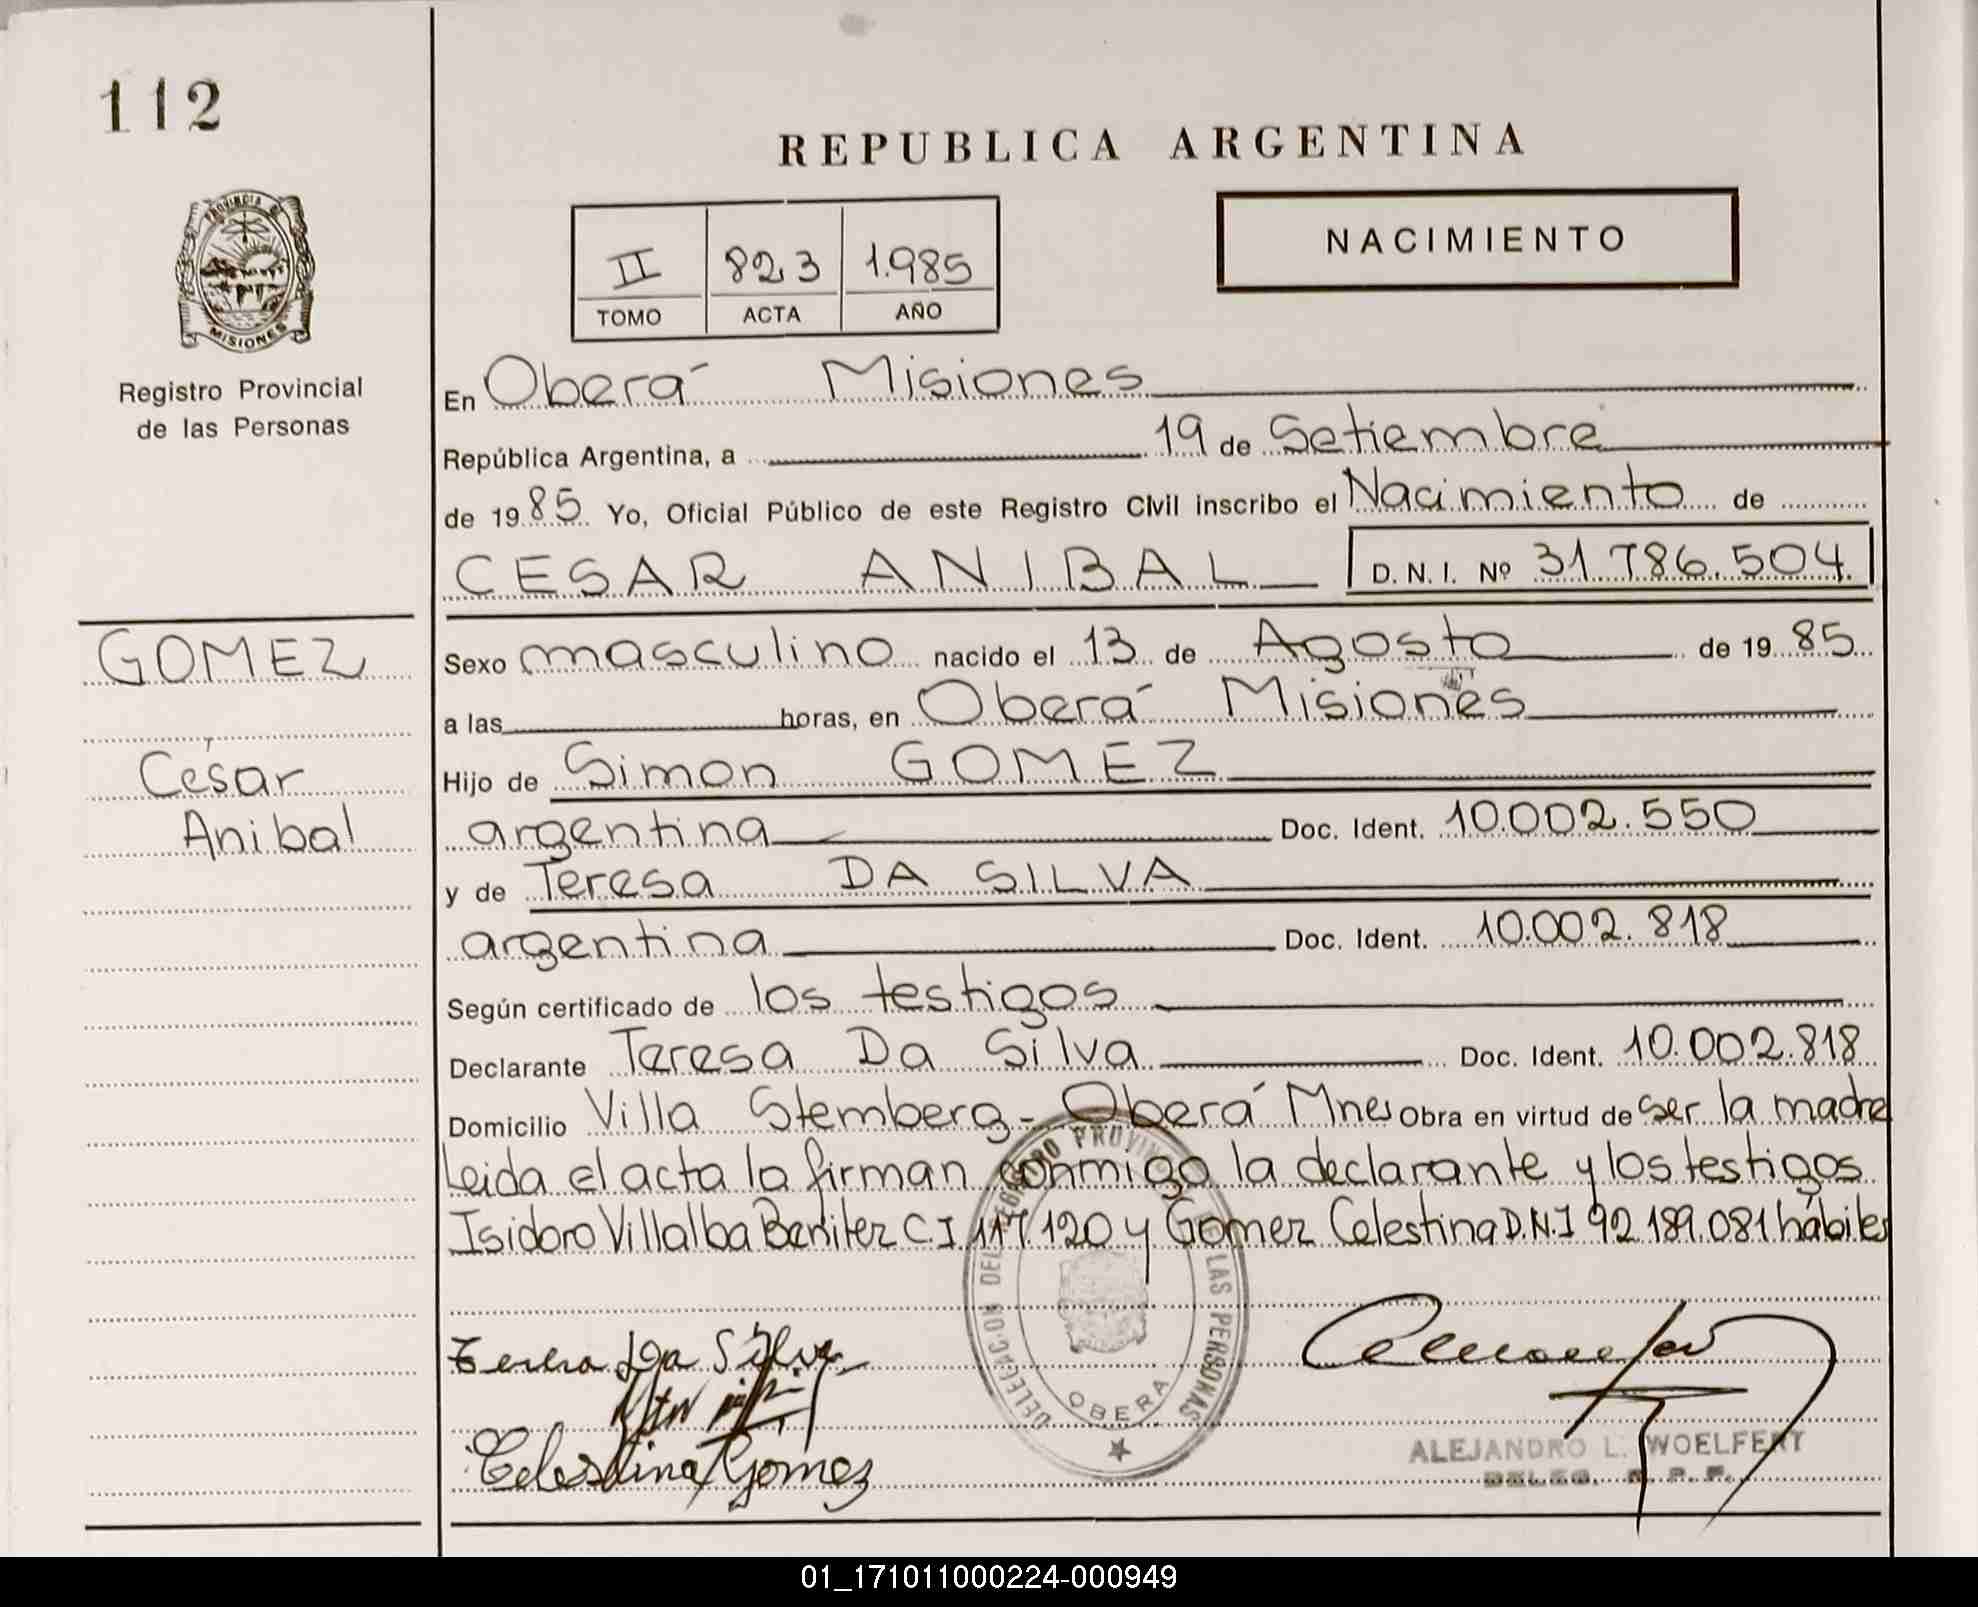 112
REPUBLICA ARGENTINA
PROVINCIA DE
MISIONES
II 823 1.985
TOMO ACTA AÑO
NACIMIENTO
Registro Provincial
de las Personas
En Oberá Misiones
República Argentina, a 19 de Setiembre
de 1985 Yo, Oficial Público de este Registro Civil inscribo el Nacimiento de
CESAR ANIBAL D. N. I. Nº 31.786.504
GOMEZ
César
Anibal
Sexo masculino nacido el 13 de Agosto de 1985
a las horas, en Oberá Misiones
Hijo de Simon GOMEZ
argentina Doc. Ident. 10.002.550
y de Teresa DA SILVA
argentina Doc. Ident. 10.002.818
Según certificado de los testigos
Declarante Teresa Da Silva Doc. Ident. 10.002.818
Domicilio Villa Stemberg - Oberá Mnes Obra en virtud de ser la madre
Leida el acta la firman conmigo la declarante y los testigos
Isidoro Villalba Benitez C.I. 117.120 y Gomez Celestina D.N.I 92.189.081 hábiles
DELEGACION DEL REGISTRO PROVINCIAL DE LAS PERSONAS
OBERA
Teresa Da Silva
Celestina Gomez
ALEJANDRO L. WOELFERT
DELEG. R. P. P.
01_171011000224-000949